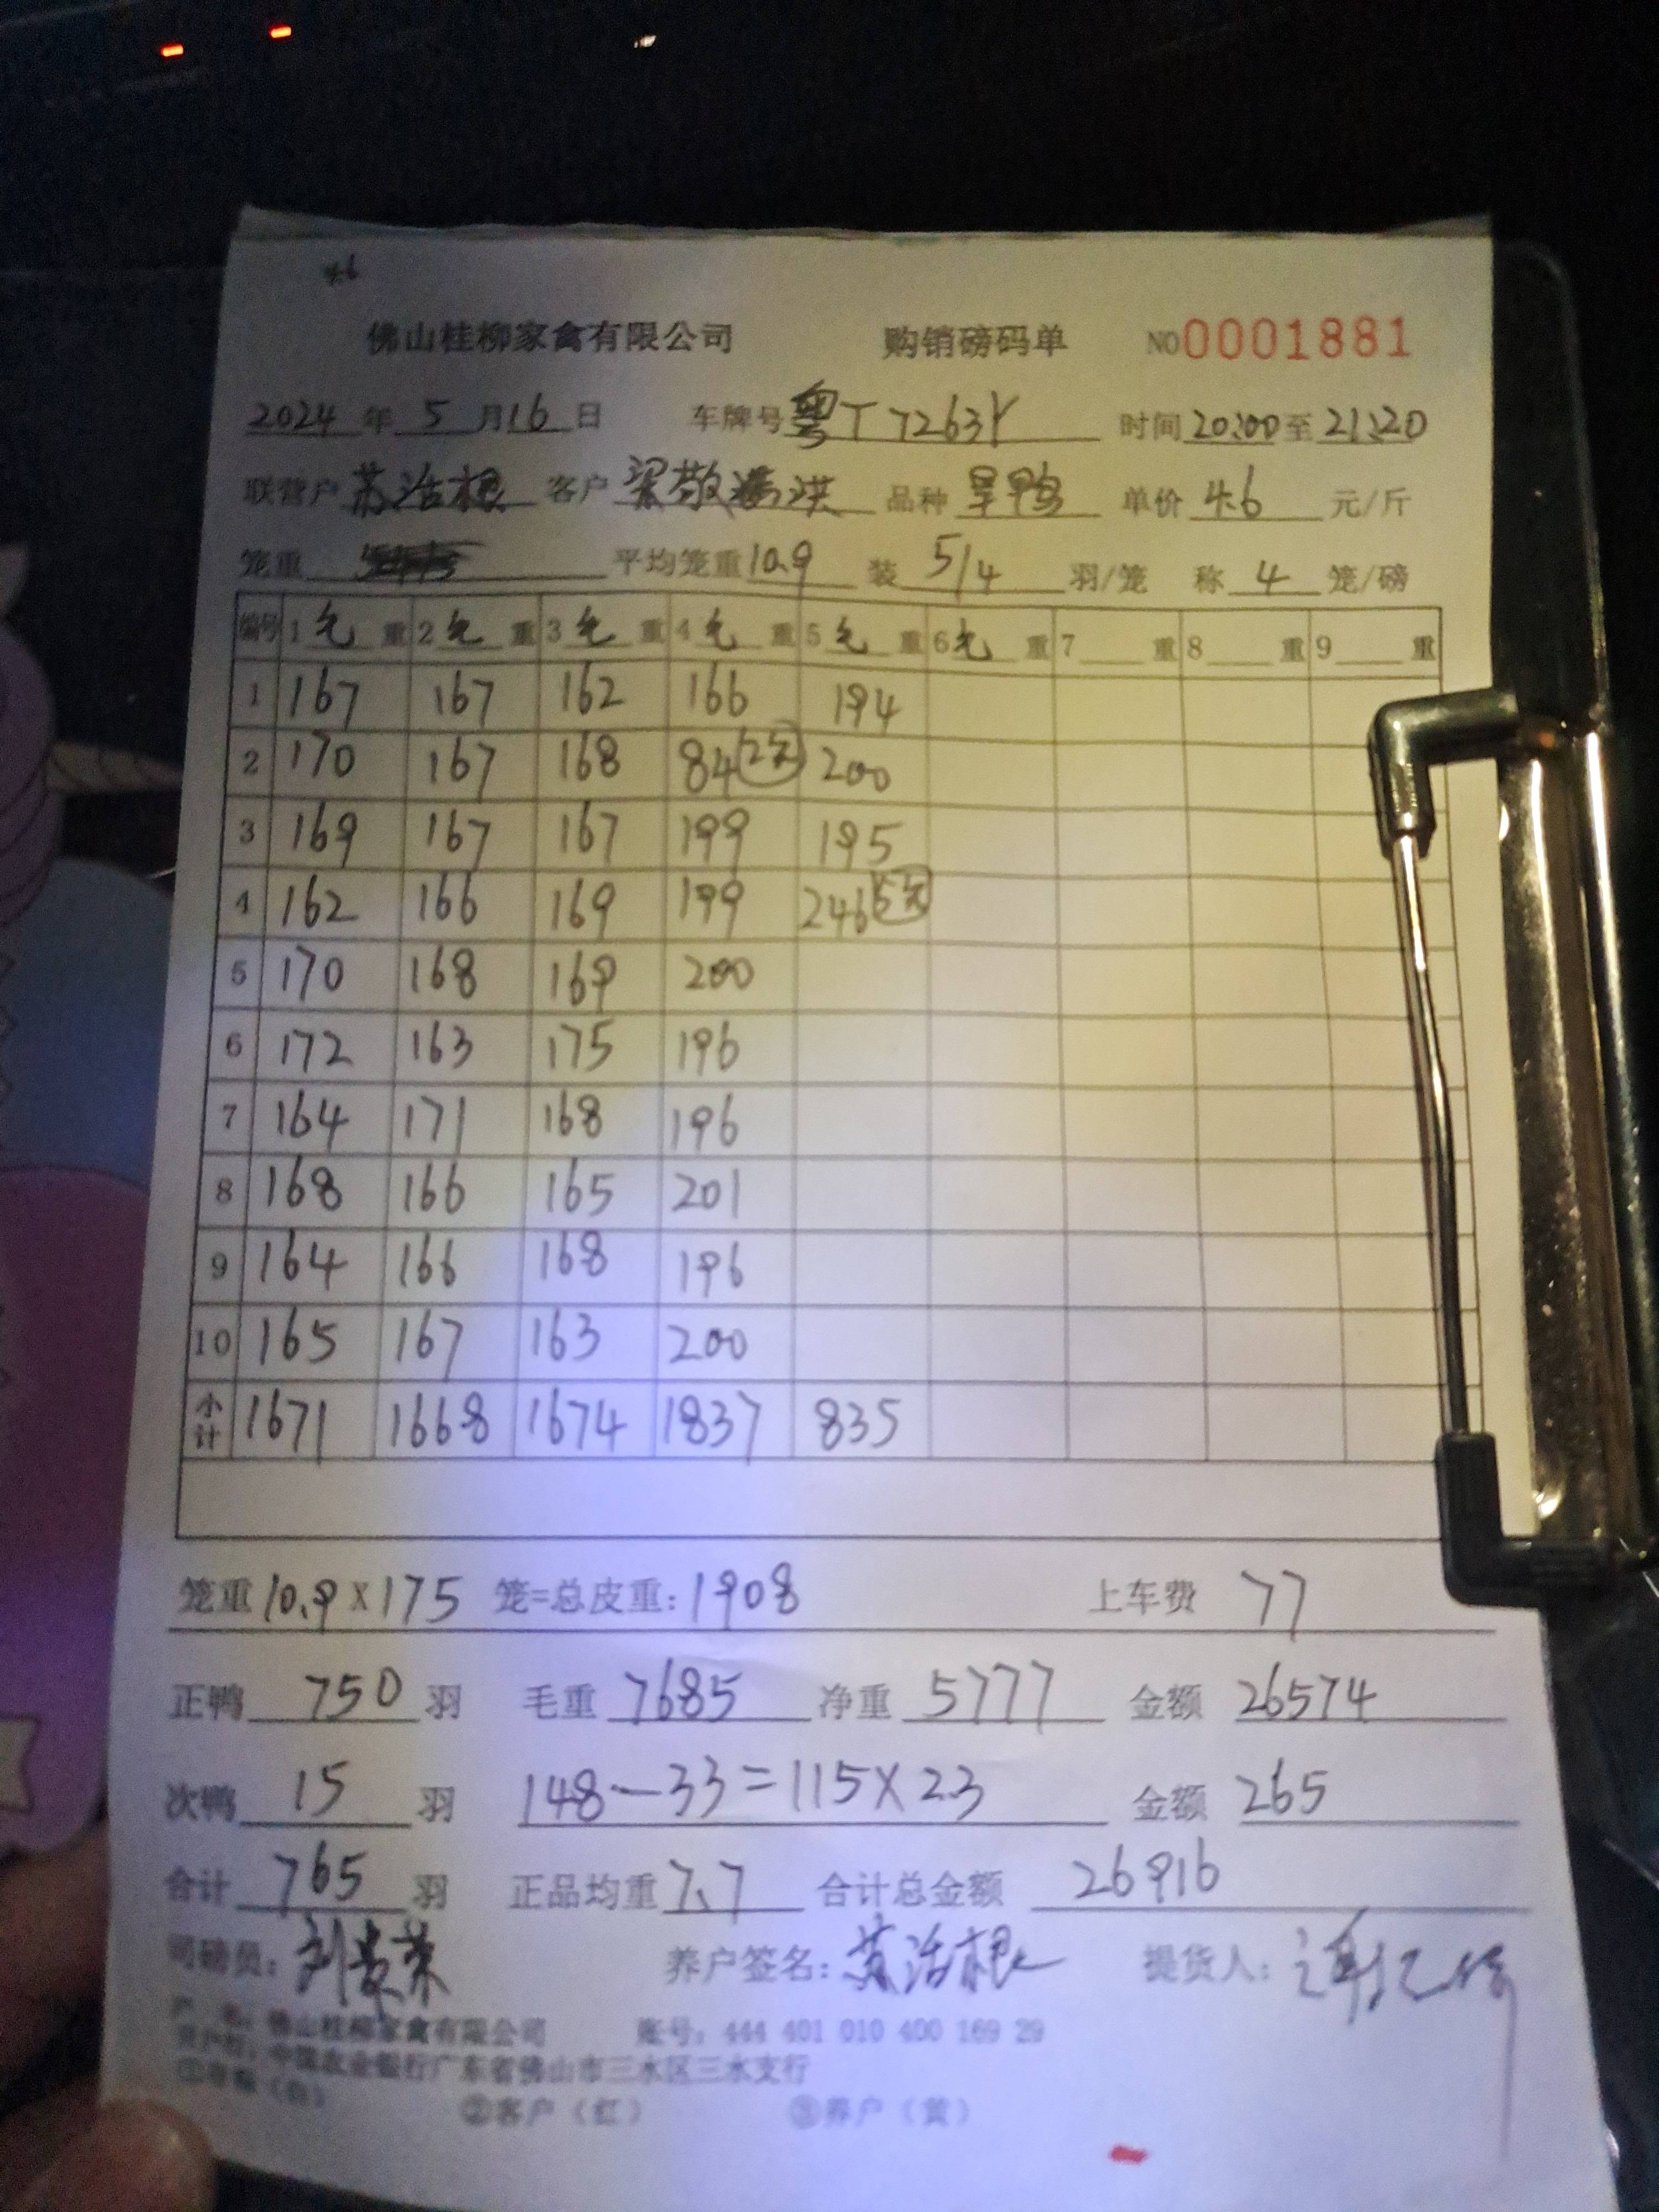 4.6
佛山桂柳家禽有限公司 购销磅码单 NO 0001881
2024 年 5 月 16 日 车牌号 粤T7263Y 时间 20:00 至 21:20
联营户 苏活根 客户 梁敬洪 品种 旱鸭 单价 4.6 元/斤
笼重 平均笼重 10.9 装 5/4 羽/笼 称 4 笼/磅
编号 1 毛 重 2 毛 重 3 毛 重 4 毛 重 5 毛 重 6 毛 重 7 重 8 重 9 重
1 167 167 162 166 194
2 170 167 168 84 200
3 169 167 167 199 195
4 162 166 169 199 246
5 170 168 169 200
6 172 163 175 196
7 164 171 168 196
8 168 166 165 201
9 164 166 168 196
10 165 167 163 200
小计 1671 1668 1674 1837 835
笼重 10.9 x 175 笼=总皮重: 1908 上车费 77
正鸭 750 羽 毛重 7685 净重 5777 金额 26574
次鸭 15 羽 148-33=115×2.3 金额 265
合计 765 羽 正品均重 7.7 合计总金额 26916
司磅员: 养户签名: 苏活根 提货人:
户 名: 佛山桂柳家禽有限公司 账号: 444 401 010 400 169 29
开户行: 中国农业银行广东省佛山市三水区三水支行
②客户（红） ③养户（黄）